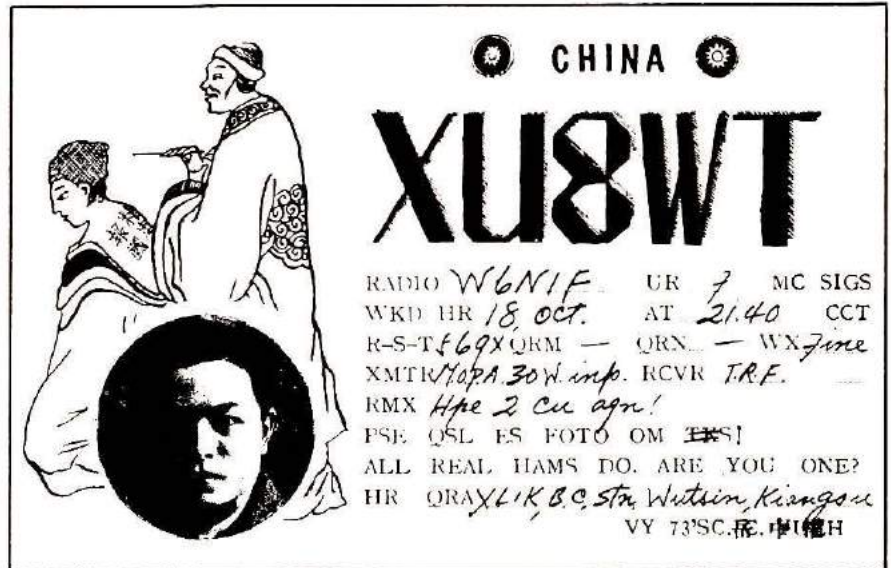 CHINA
XU8WT
RADIO W6NIF UR 7 MC SIGS
WKD HR 18 OCT. AT 21.40 CCT
R-S-T 569X QRM — QRN — WX Fine
XMTR MOPA 30W. inp. RCVR T.R.F.
RMX Hpe 2 cu agn!
PSE QSL ES FOTO OM TKS!
ALL REAL HAMS DO. ARE YOU ONE?
HR QRA XLIK, B.C. Stn, Wutsin, Kiangsu
VY 73'S C.